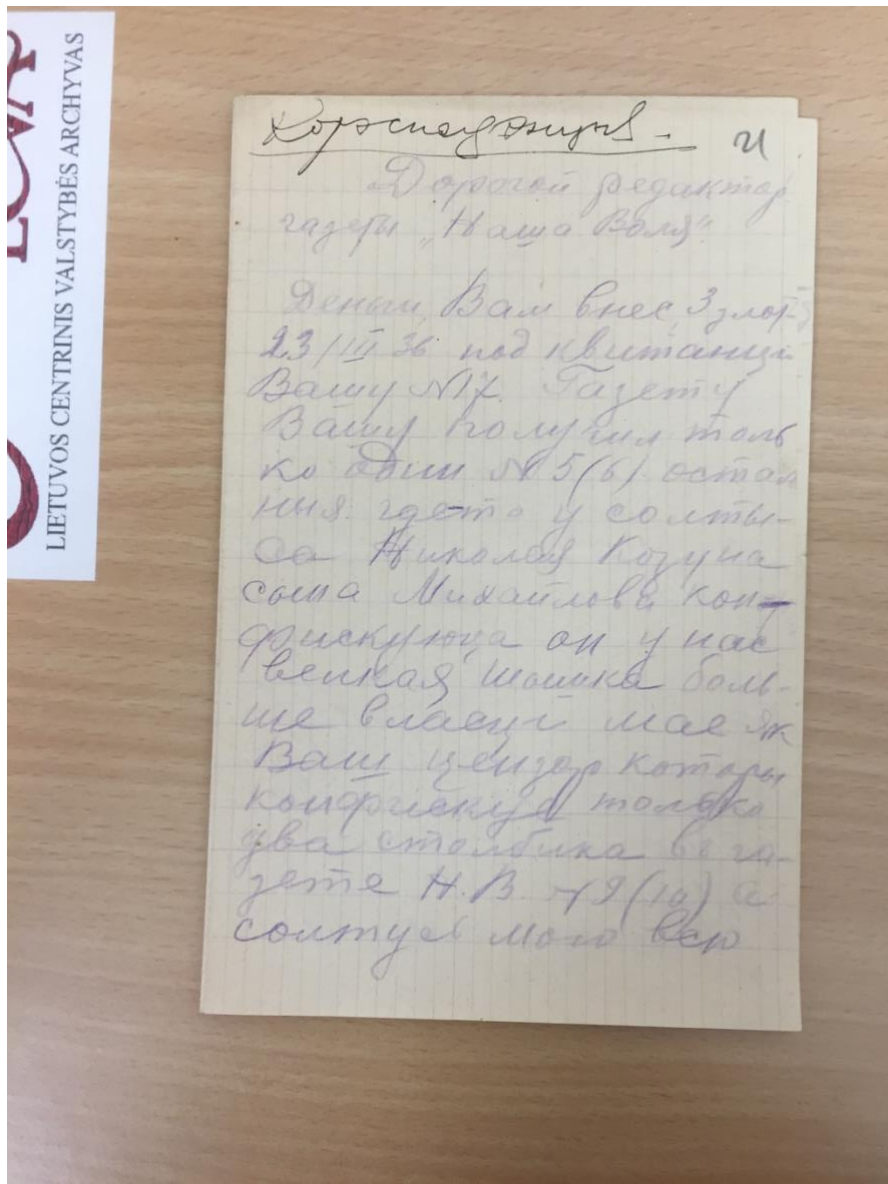 LIETUVOS CENTRINIS VALSTYBĖS ARCHYVAS
Дорогой редактор
газеты „Наша Воля"
Деньги Вам внес 3 злот
23/III 36 под квитанцы
Вашу №17. Газету
Вашу получил толь
ко один № 5(6) осталь
ныя где-то у солты-
са Николая Козуна
сына Михайлова кон-
фискуюца он у нас
великая шышка боль-
ше власци мае як
Ваш цензор которы
конфискуе только
два столбика в га-
зете Н.В. №9(10) а
солтус мою всю